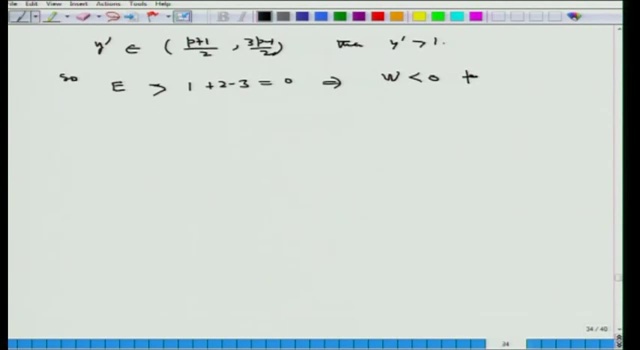 File View Insert Actions Tools Help
y' ∈ ( p+1/2 , 3p-1/2 ) then y' > 1.
so E > 1 + 2 - 3 = 0 ⇒ W < 0
34 / 40
34